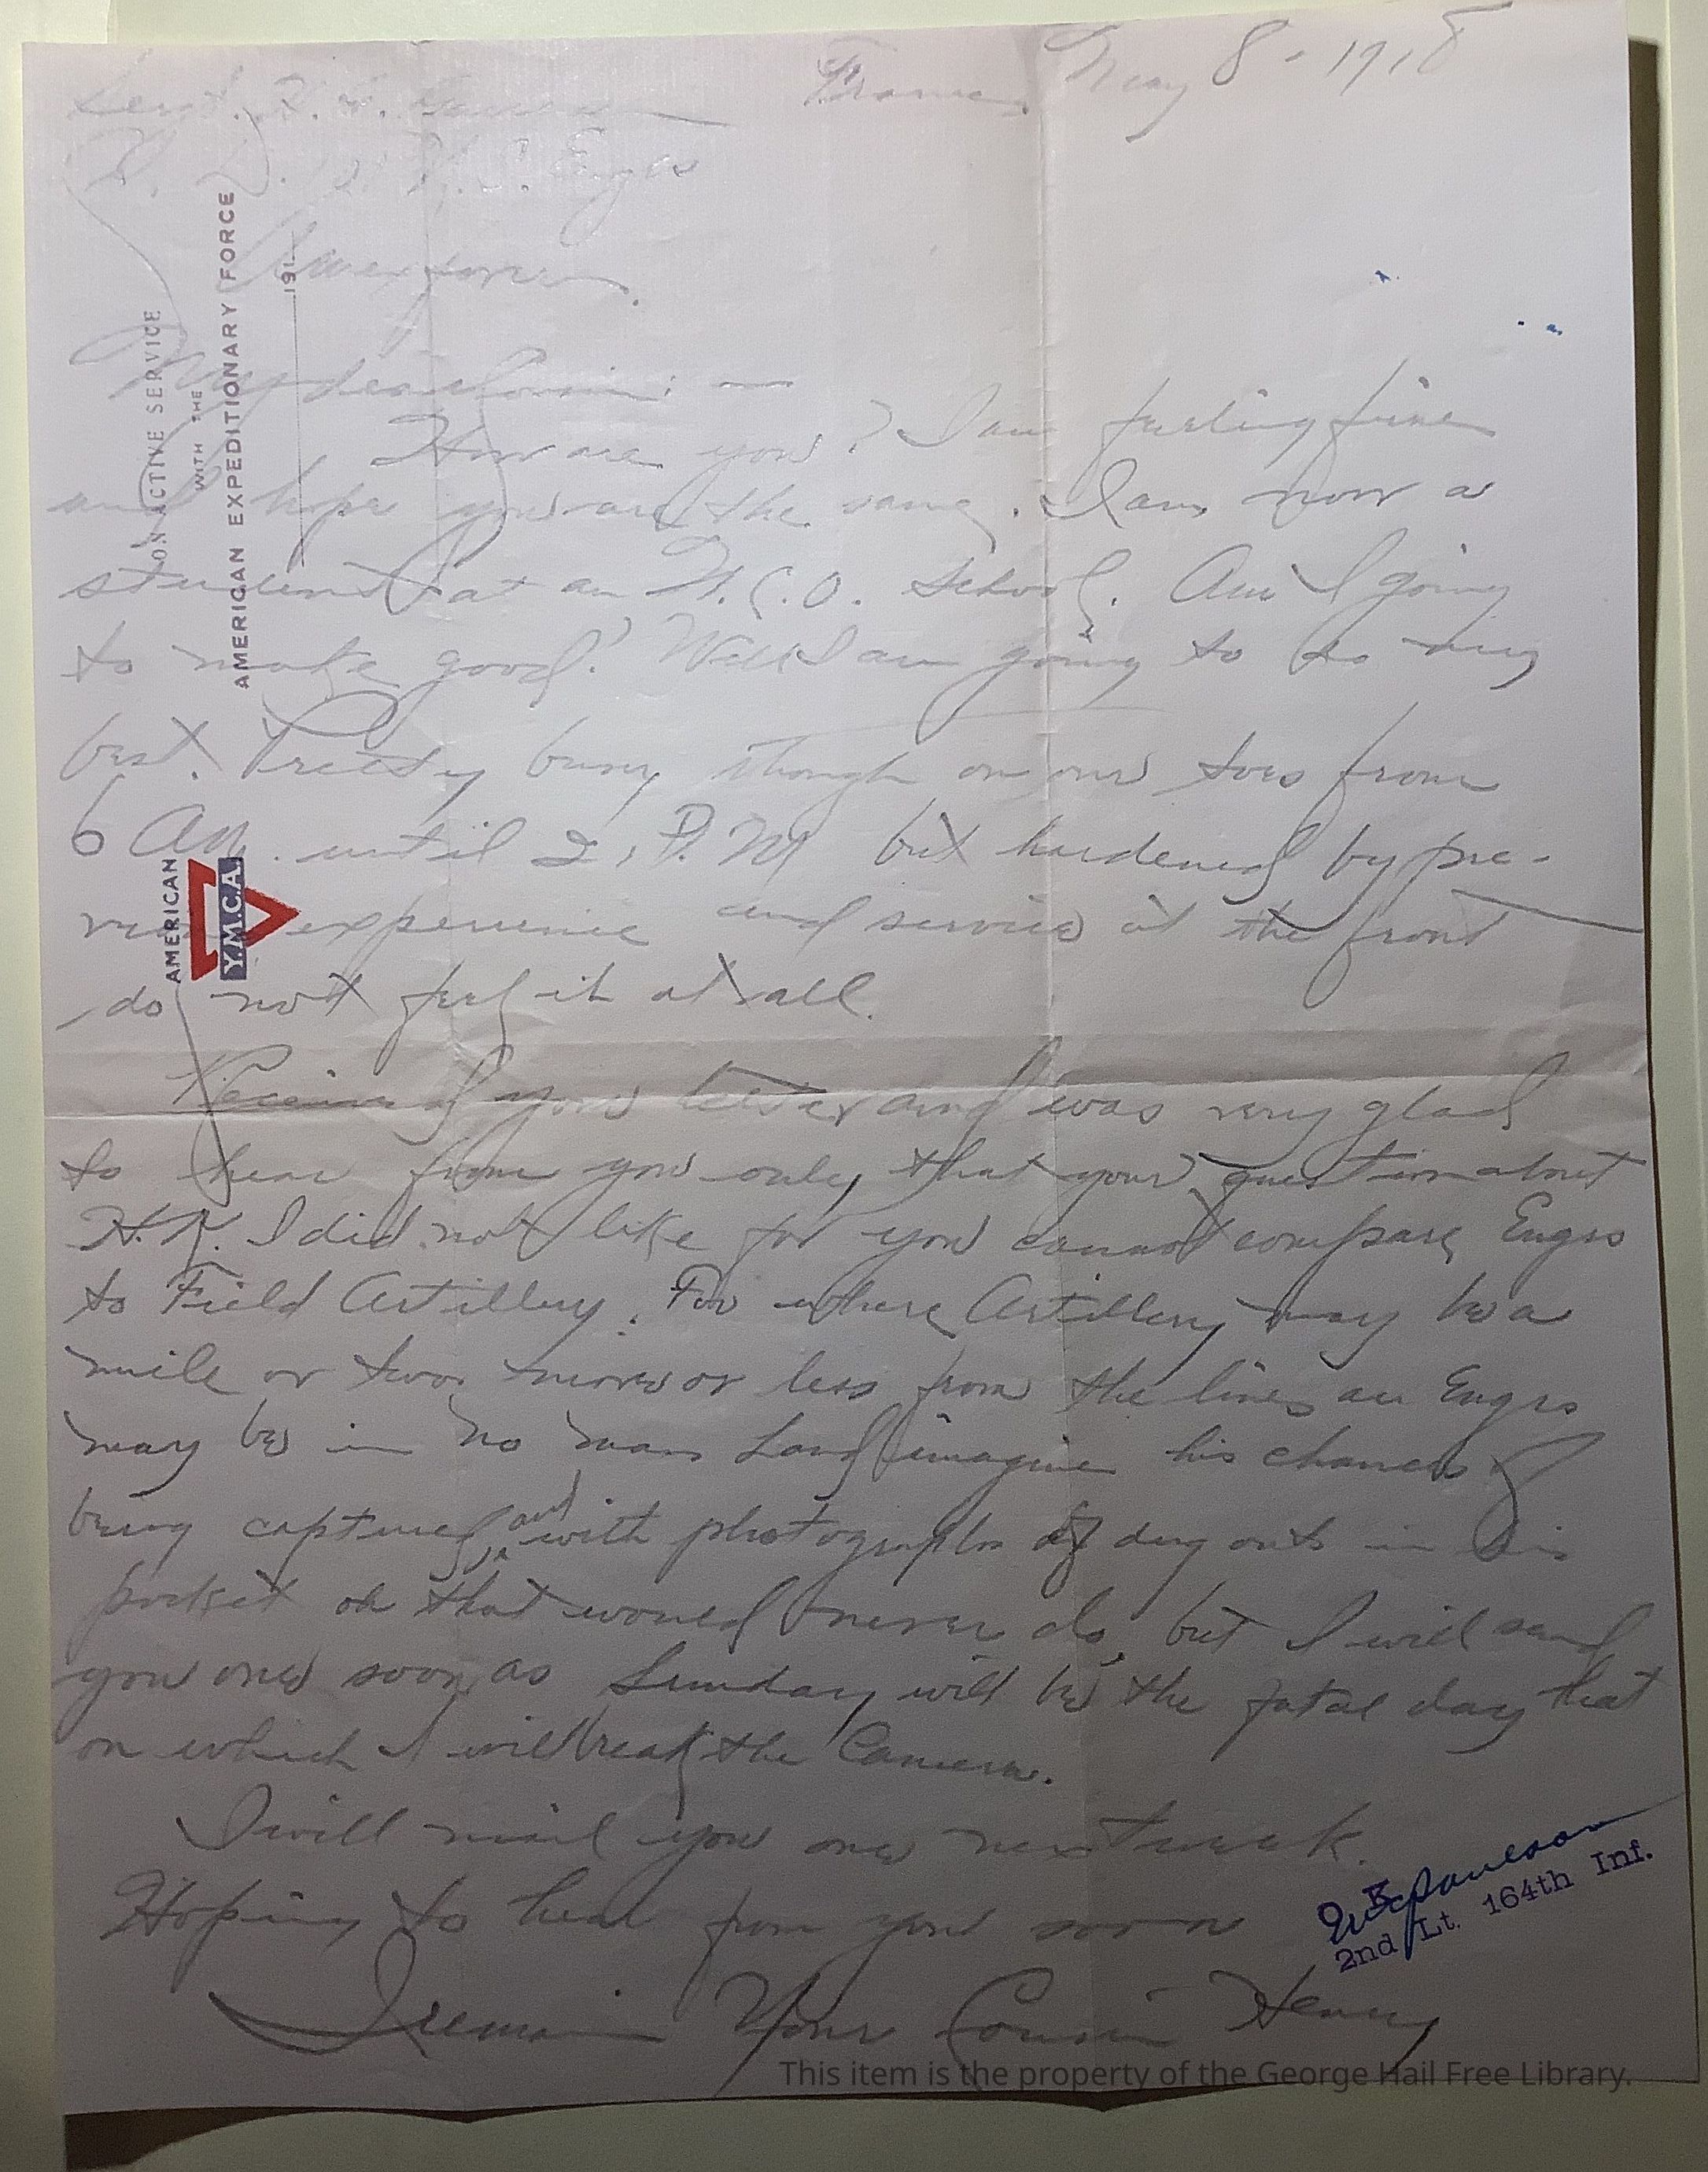 France, May 8 - 1918
Co. D. 101 U.S. Engrs
Amex forces.
My dear Cousin: —
How are you? I am feeling fine
and hope you are the same. I am now a
student at an N.C.O. School. Am I going
to make good? Well I am going to do my
best. Pretty busy though on our toes from
6 AM. until 2, P.M but hardened by pre-
vious experience and service at the front
do not feel it at all.
Received your letter and was very glad
to hear from you only that your question about
H.K. I did not like for you cannot compare Engrs
to Field Artillery. For where Artillery may be a
mile or two more or less from the lines an Engrs
may be in no mans Land imagine his chances of
being captured and with photographs of dug outs in his
pocket oh that would never do, but I will send
you one soon as Sunday will be the fatal day that
on which I will break the Camera.
I will mail you one next week.
Hoping to hear from you soon
I remain Your Cousin Henry
ON ACTIVE SERVICE
WITH THE
AMERICAN EXPEDITIONARY FORCE
191
AMERICAN
Y.M.C.A.
O.K.
2nd Lt. 164th Inf.
This item is the property of the George Hail Free Library.